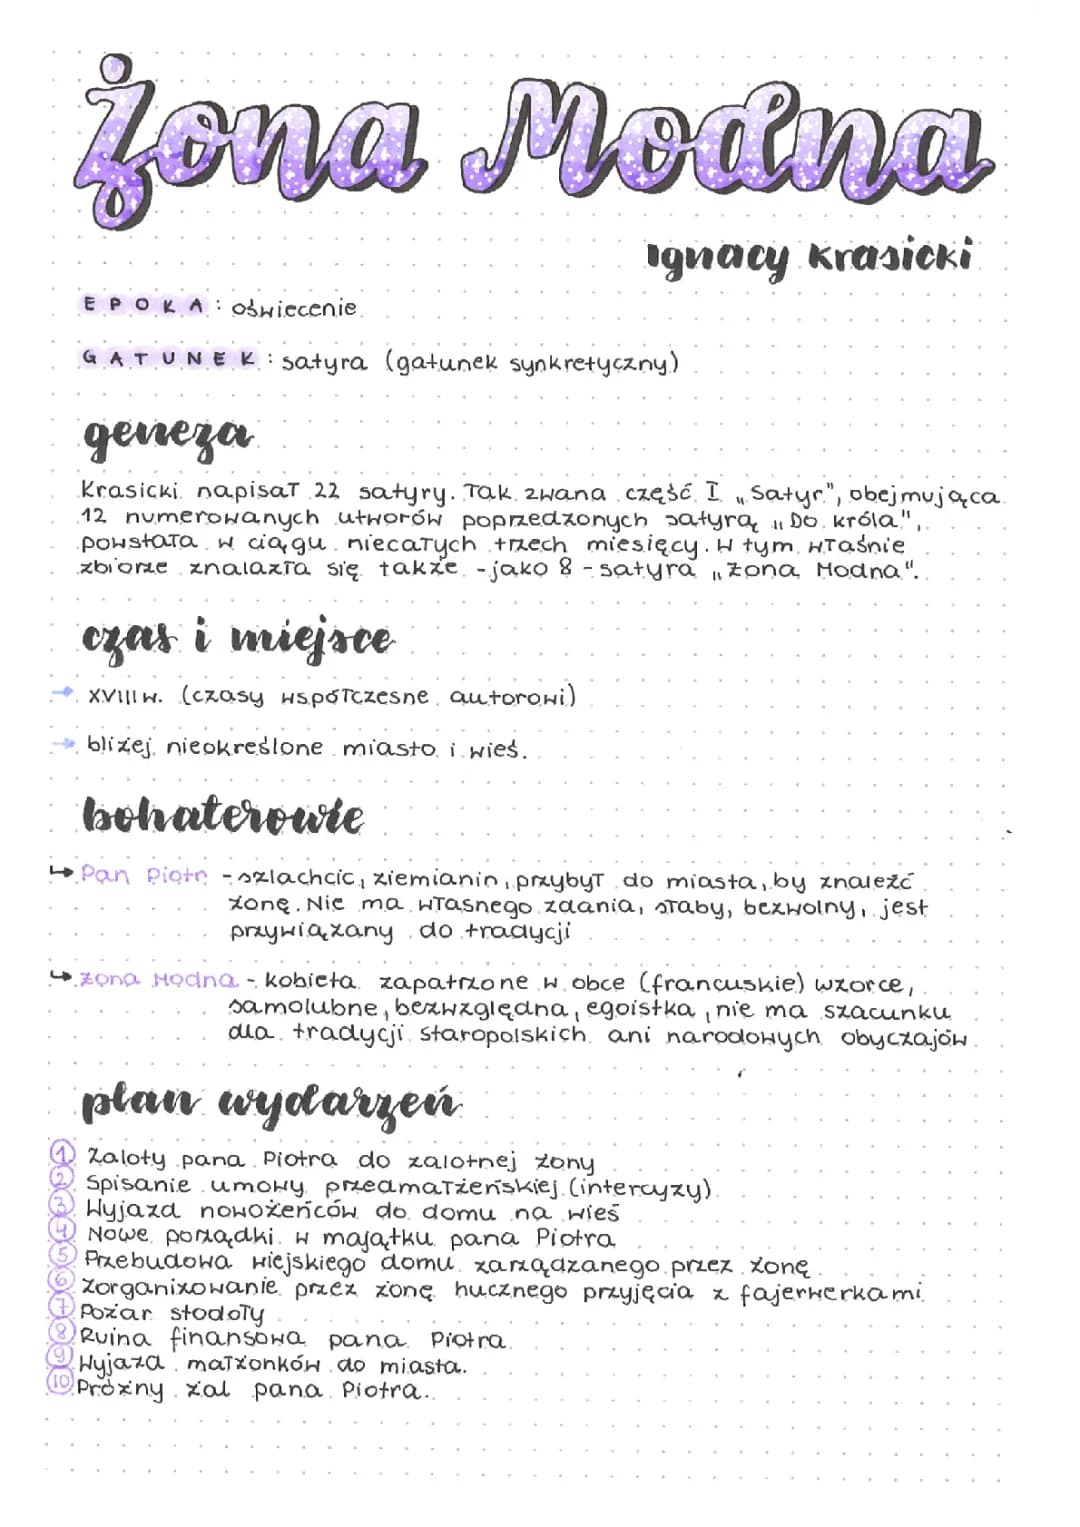 żona Modna
Ignacy Krasicki
EPOKA: oświecenie
GATUNEK: satyra (gatunek synkretyczny)
geneza
Krasicki napisał 22 satyry. Tak zwana część I „Satyr", obejmująca
12 numerowanych utworów poprzedzonych satyrą „Do króla",
powstała w ciągu niecałych trzech miesięcy. W tym właśnie
zbiorze znalazła się także - jako 8 - satyra „Żona Modna".
czas i miejsce
→ XVIII w. (czasy współczesne autorowi)
→ bliżej nieokreślone miasto i wieś.
bohaterowie
↳ Pan Piotr - szlachcic, ziemianin, przybył do miasta, by znaleźć
żonę. Nie ma własnego zdania, słaby, bezwolny, jest
przywiązany do tradycji
↳ Żona Modna - kobieta zapatrzone w obce (francuskie) wzorce,
samolubne, bezwzględna, egoistka, nie ma szacunku
dla tradycji staropolskich ani narodowych obyczajów.
plan wydarzeń
1 Zaloty pana Piotra do zalotnej żony
2 Spisanie umowy przedmałżeńskiej (intercyzy)
3 Wyjazd nowożeńców do domu na wieś
4 Nowe porządki w majątku pana Piotra
5 Przebudowa wiejskiego domu zarządzanego przez żonę
6 Zorganizowanie przez żonę hucznego przyjęcia z fajerwerkami
7 Pożar stodoły
8 Ruina finansowa pana Piotra
9 Wyjazd małżonków do miasta.
10 Próżny żal pana Piotra.